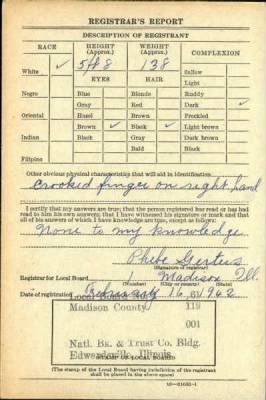 REGISTRAR'S REPORT
DESCRIPTION OF REGISTRANT
RACE HEIGHT (Approx.) WEIGHT (Approx.) COMPLEXION
White ✓ 5 ft 8 138 Sallow
EYES HAIR Light
Negro Blue Blonde Ruddy
Gray Red Dark ✓
Oriental Hazel Brown Freckled
Brown ✓ Black ✓ Light brown
Indian Black Gray Dark brown
Bald Black
Filipino
Other obvious physical characteristics that will aid in identification
Crooked finger on right hand
I certify that my answers are true; that the person registered has read or has had
read to him his own answers; that I have witnessed his signature or mark and that
all of his answers of which I have knowledge are true, except as follows:
None to my knowledge
Phebe
(Signature of registrar)
Registrar for Local Board 1 Madison Ill.
Date of registration February 16, 1942
Madison County 119
001
Natl. Bk. & Trust Co. Bldg.
Edwardsville, Illinois
STAMP OF LOCAL BOARD
(The stamp of the Local Board having jurisdiction of the registrant
shall be placed in the above space)